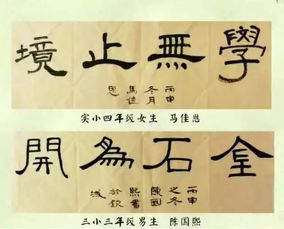 學無止境
丙申
冬月
馬佳
恩
实小四年级女生 马佳恩
金石為開
丙申
之冬
陳國
熙書
於欽
城
三小三年级男生 陈国熙